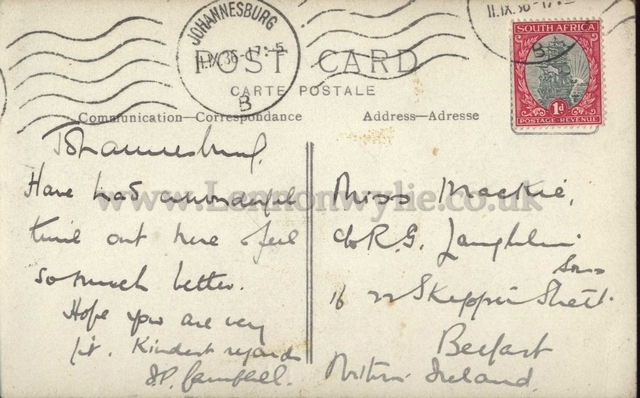 JOHANNESBURG
11.IX.36-17:-5
B
11.IX.36-17:-5
B
SOUTH AFRICA
1d
POSTAGE-REVENUE
POST CARD
CARTE POSTALE
Communication-Correspondance
Address-Adresse
Johannesburg.
Have had a wonderful
time out here & feel
so much better.
Hope you are very
fit. Kindest regards
Campbell.
Miss Mackie,
c/o R.G. Laughlin
Sons
16 22 Skipper Street.
Belfast
Ireland.
www.Lennonwylie.co.uk